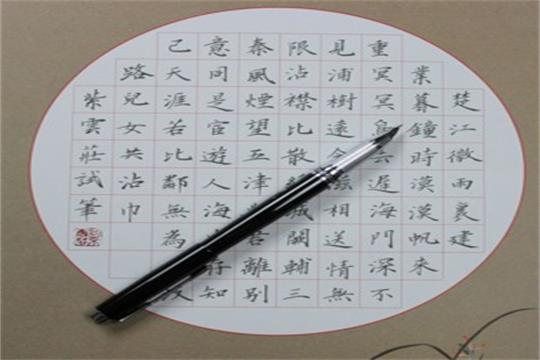 楚江微雨裏建
業暮鐘時漠漠帆來
重冥冥鳥去遲海門深不
見浦樹遠含滋相送情無
限沾襟比散城闕輔三
秦風煙望五津君離別
意同是宦遊人海存知
己天涯若比鄰無為歧
路兒女共沾巾
紫雲莊試筆